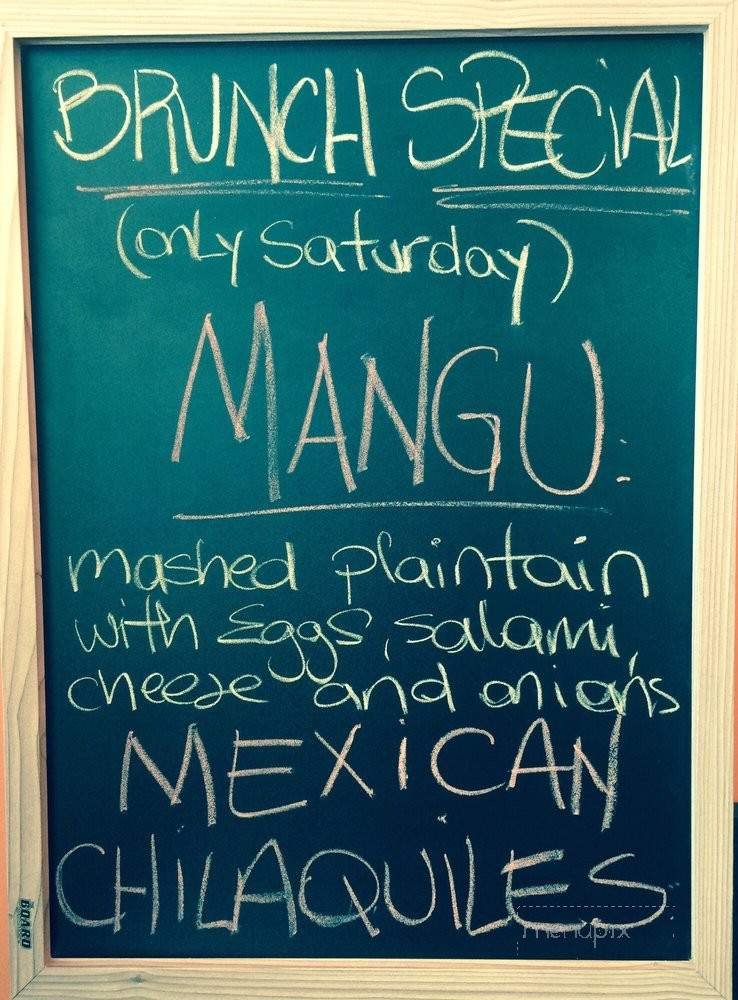 BRUNCH SPECiAL
(only Saturday)
MANGU.
mashed plaintain
with Eggs, salami,
cheese and onions
MEXiCAN
CHiLAQUILES
BOARD
menupix